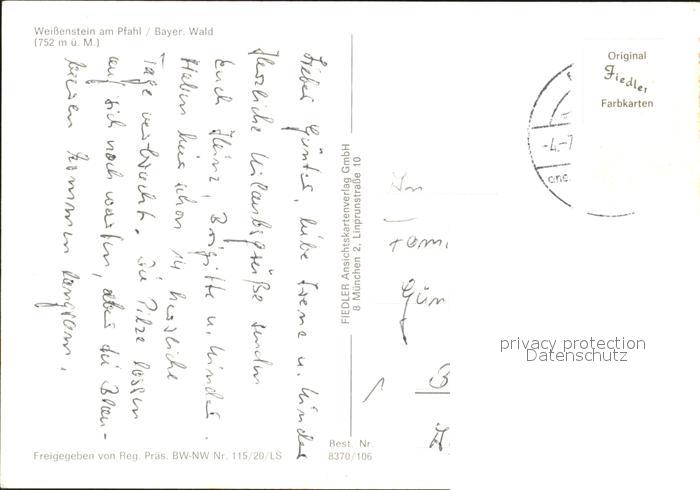 Weißenstein am Pfahl / Bayer. Wald
(752 m ü. M.)
Lieber Günter, liebe Irene u. Kinder
Herzliche Urlaubsgrüße senden
Euch Heinz, Brigitte u. Kinder.
Haben hier schon 14 herrliche
Tage verbracht. Die Pilze lassen
auf sich noch warten, aber die Blau-
beeren kommen langsam.
Freigegeben von Reg. Präs. BW-NW Nr. 115/20/LS
FIEDLER Ansichtskartenverlag GmbH
8 München 2, Linprunstraße 10
Best. Nr.
8370/106
Original
Fiedler
Farbkarten
-4.-7
An
Fami
Gün
privacy protection
Datenschutz